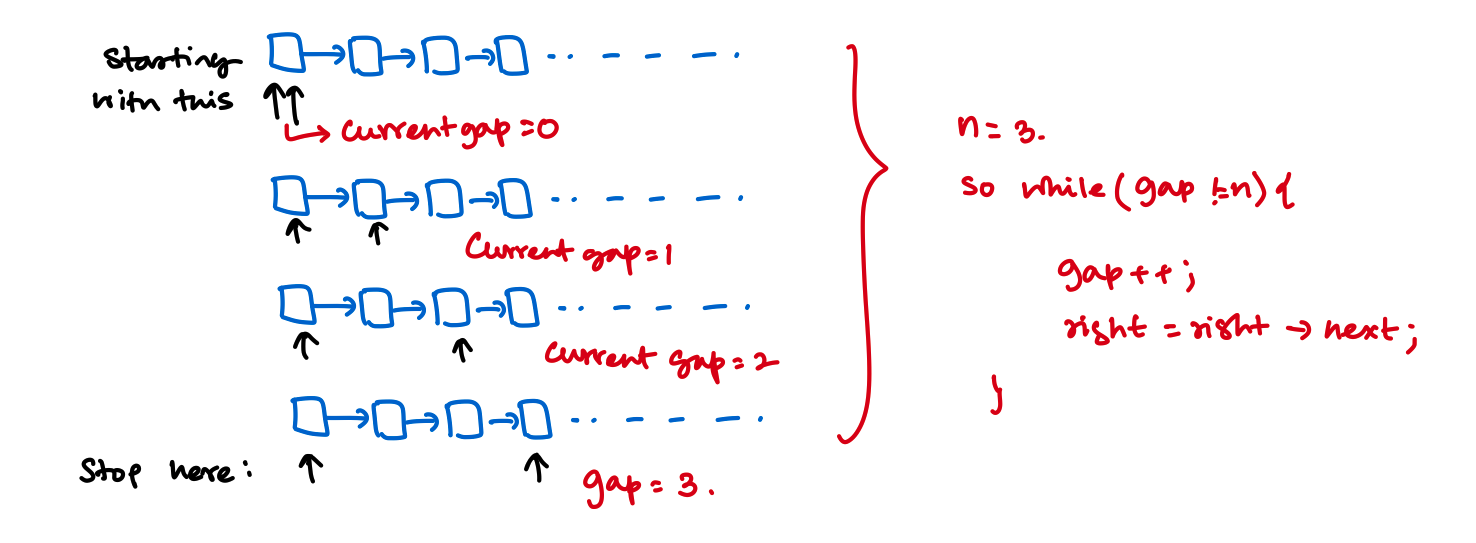 Starting
with this
Current gap = 0
Current gap = 1
Current gap = 2
Stop here:
gap = 3.
n = 3.
so while (gap != n) {
gap++;
right = right → next;
}